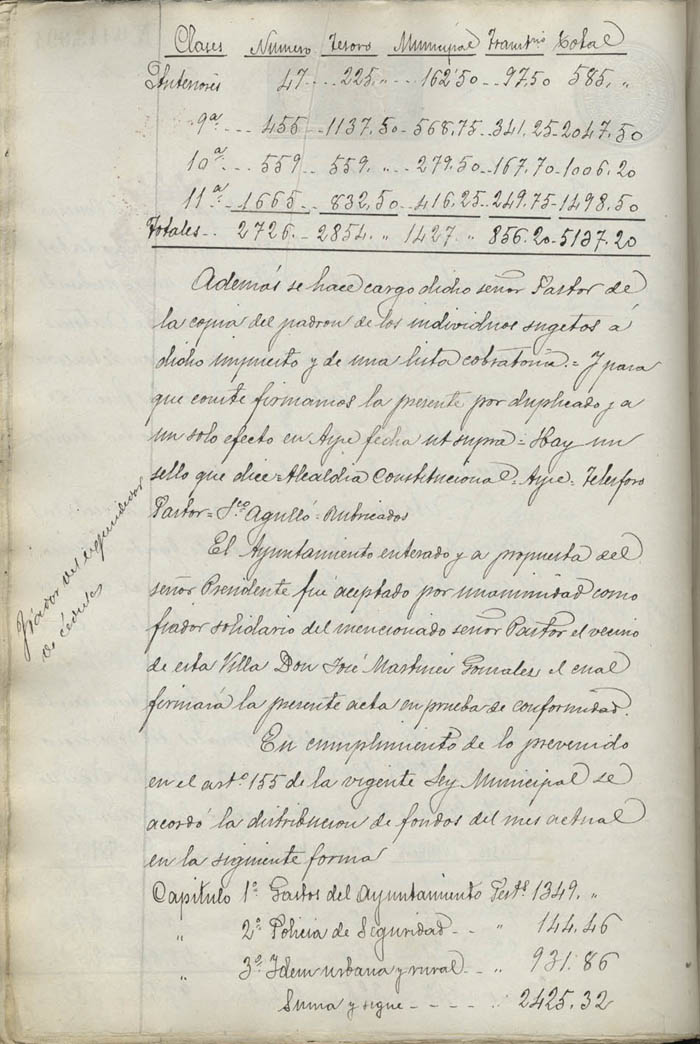 Clases Número Tesoro Municipal Transitrio Total
Anteriores 47 .... 225, „ .... 162'50 .. 97,50 585, „
9ª ... 455 .. 1137,50 .. 568,75 .. 341,25 .. 2047,50
10ª ... 559 .. 559, „ .. 279,50 .. 167,70 .. 1006,20
11ª 1665 .. 832,50 .. 416,25 .. 249,75 .. 1498,50
Totales .. 2726 .. 2854, „ 1427 „ 856,20 .. 5137,20
Además se hace cargo dicho señor Pastor de
la copia del padron de los individuos sugetos á
dicho impuesto y de una lista cobratoria. = Y para
que conste firmamos la presente por duplicado y a
un solo efecto en Aspe fecha ut supra = Hay un
sello que dice = Alcaldia Constitucional = Aspe = Telesforo
Pastor = Fco Agulló = Rubricados
Fiador del espendedor
de cédulas
El Ayuntamiento enterado y a propuesta del
señor Presidente fué aceptado por unanimidad como
fiador solidario del mencionado señor Pastor el vecino
de esta Villa Don José Martinez Gonzales el cual
firmará la presente acta en prueba de conformidad.
En cumplimiento de lo prevenido
en el artº 155 de la vigente Ley Municipal se
acordó la distribucion de fondos del mes actual
en la siguiente forma
Capitulo 1º Gastos del Ayuntamiento Pests 1349, „
„ 2º Policia de Seguridad .. „ 144,46
„ 3º Idem urbana y rural .. „ 931,86
Suma y sigue - - - - - „ 2425,32